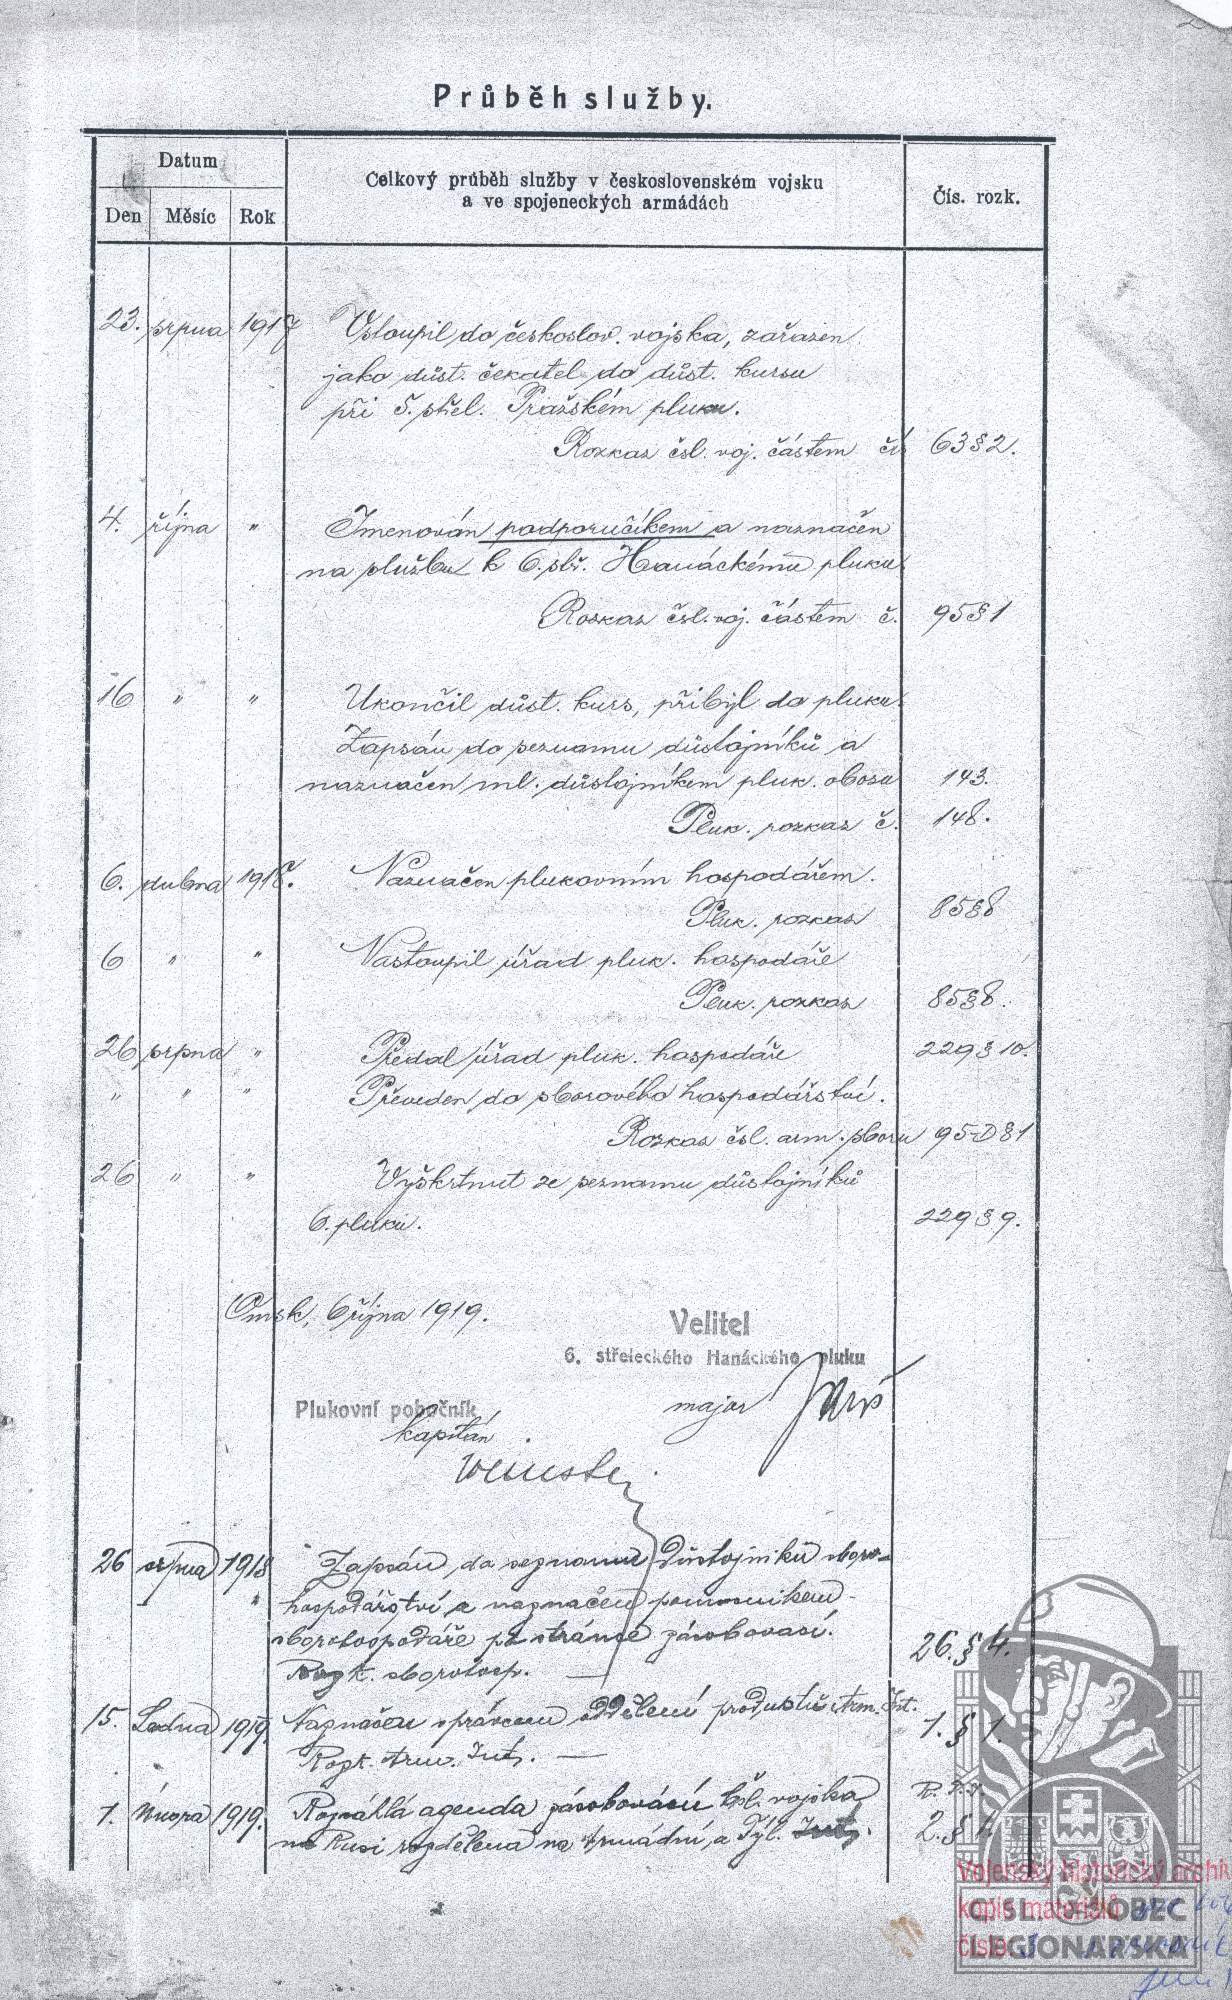 Průběh služby.
Datum
Den Měsíc Rok
Celkový průběh služby v československém vojsku
a ve spojeneckých armádách
Čís. rozk.
23. srpna 1917 Vstoupil do českoslov. vojska, zařazen
jako důst. čekatel do důst. kursu
při 5. střel. Pražském pluku.
Rozkaz čsl. voj. částem čís. 63 § 2.
4. října " Jmenován podporučíkem a naznačen
na službu k 6. stř. Hanáckému pluku
Rozkaz čsl. voj. částem č. 95 § 1
16 " " Ukončil důst. kurs, přibyl do pluku.
Zapsán do seznamu důstojníků a
naznačen ml. důstojníkem pluk. obozu 143.
Pluk. rozkaz č. 148.
6. dubna 1918. Naznačen plukovním hospodářem.
Pluk. rozkaz 85 § 8
6 " " Nastoupil úřad pluk. hospodáře
Pluk. rozkaz 85 § 8.
26 srpna " Předal úřad pluk. hospodáře 229 § 10.
" " " Převeden do sborového hospodářství.
Rozkaz čsl. arm. sboru 95-D § 1
26 " " Vyškrtnut ze seznamu důstojníků
6. pluku. 229 § 9.
Omsk, 6 října 1919.
Velitel
6. střeleckého Hanáckého pluku
major
Plukovní pobočník
kapitán
26 srpna 1918 Zapsán do seznamu důstojníků sboro-
" hospodářství a naznačen pomocníkem
sborohospodáře po stránce zásobovací. 26. § 4.
Rozk. sborohosp.
15. Ledna 1919 Naznačen správcem oddělení produktů Arm. Int. 1. § 1.
Rozk. Arm. Int.
1. Února 1919. Rozsáhlá agenda zásobování čsl. vojska
na Rusi rozdělena na armádní a Týl. Int. 2. §
Vojenský historický archiv
kopie materiálů
číslo:
ČSL. OBEC
LEGIONÁŘSKÁ